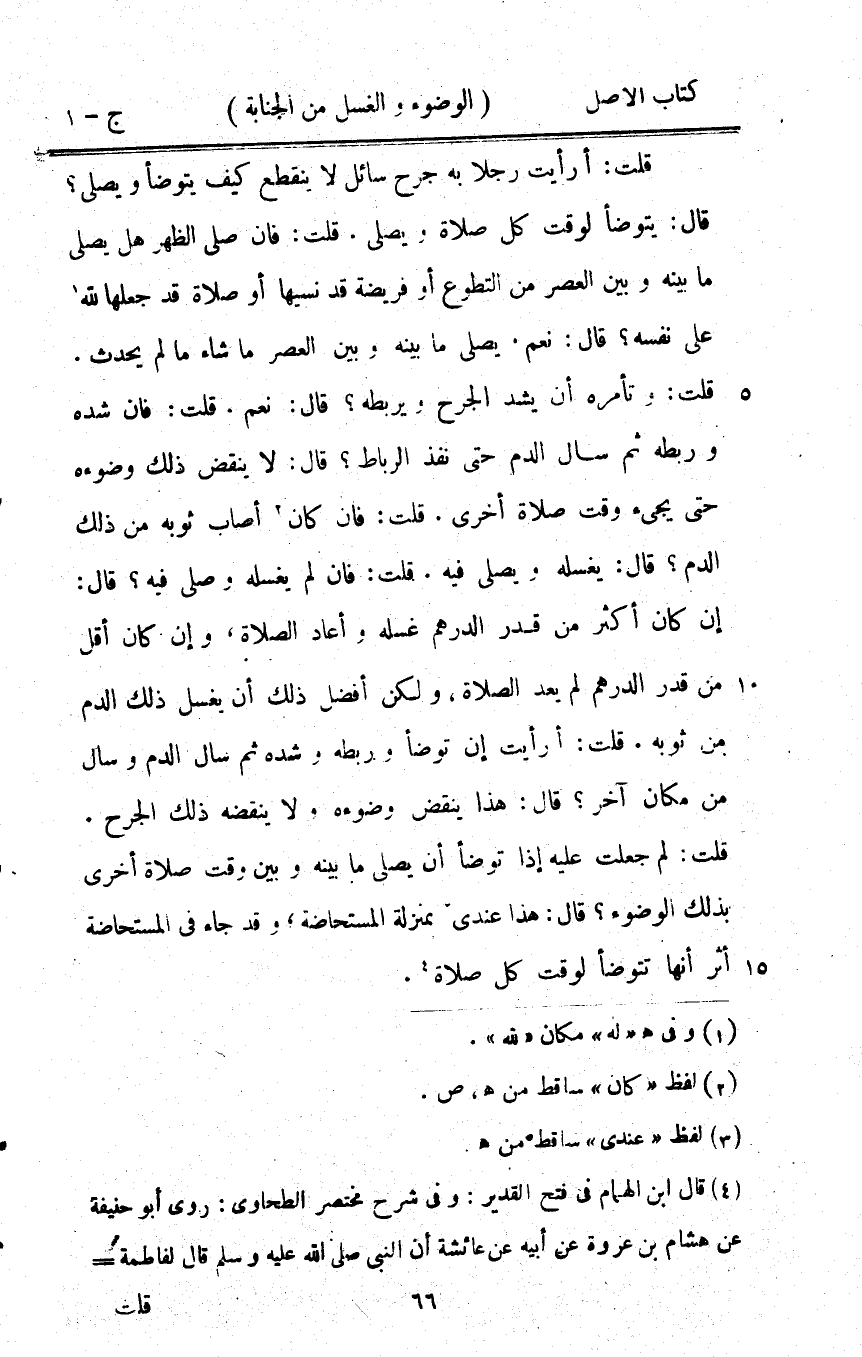 كتاب الاصل ( الوضوء و الغسل من الجنابة ) ج - ١
قلت: أ رأيت رجلا به جرح سائل لا ينقطع كيف يتوضأ و يصلى ؟
قال: يتوضأ لوقت كل صلاة و يصلى . قلت: فان صلى الظهر هل يصلى
ما بينه و بين العصر من التطوع أو فريضة قد نسيها أو صلاة قد جعلها لله١
على نفسه ؟ قال: نعم ٠ يصلى ما بينه و بين العصر ما شاء ما لم يحدث .
٥ قلت: و تأمره أن يشد الجرح و يربطه ؟ قال: نعم . قلت: فان شده
و ربطه ثم سال الدم حتى نفذ الرباط ؟ قال: لا ينقض ذلك وضوءه
حتى يجىء وقت صلاة أخرى . قلت: فان كان٢ أصاب ثوبه من ذلك
الدم ؟ قال: يغسله و يصلى فيه . قلت: فان لم يغسله و صلى فيه ؟ قال:
إن كان أكثر من قدر الدرهم غسله و أعاد الصلاة، و إن كان أقل
١٠ من قدر الدرهم لم يعد الصلاة، و لكن أفضل ذلك أن يغسل ذلك الدم
من ثوبه . قلت: أ رأيت إن توضأ و ربطه و شده ثم سال الدم و سال
من مكان آخر ؟ قال: هذا ينقض وضوءه و لا ينقضه ذلك الجرح .
قلت: لم جعلت عليه إذا توضأ أن يصلى ما بينه و بين وقت صلاة أخرى
بذلك الوضوء ؟ قال: هذا عندى٣ بمنزلة المستحاضة ؛ و قد جاء فى المستحاضة
١٥ أثر أنها تتوضأ لوقت كل صلاة٤ .
(١) و فى ه «له» مكان «لله» .
(٢) لفظ «كان» ساقط من ه، ص .
(٣) لفظ «عندى» ساقط من ه .
(٤) قال ابن الهمام فى فتح القدير : و فى شرح مختصر الطحاوى : روى أبو حنيفة
عن هشام بن عروة عن أبيه عن عائشة أن النبى صلى الله عليه و سلم قال لفاطمة =
٦٦ قلت